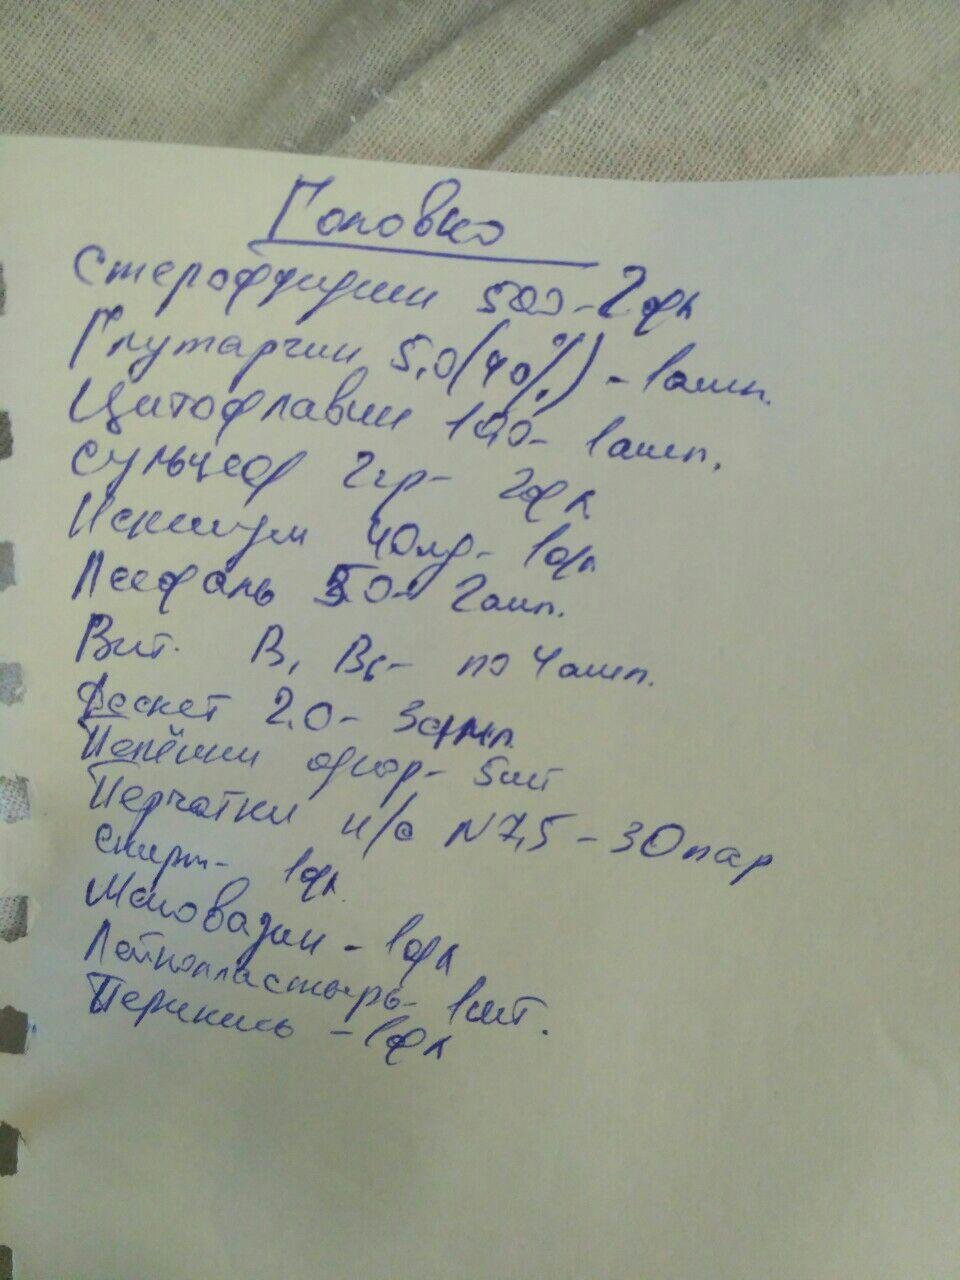 Головко
Стероффундин 500 - 2 фл
Глутаргин 5,0 (40%) - 1 амп.
Цитофлавин 10,0 - 1 амп.
Сульцеф 2 гр - 2 фл
40 мг - 1 фл
5.0 - 2 амп.
Вит. В1 В6 - по 4 амп.
2.0 - 3 амп.
Пелёнки однор - 5 шт
Перчатки н/с N 7,5 - 30 пар
Спирт - 1 фл.
Меновазин - 1 фл
Лейкопластырь - 1 шт.
Перекись - 1 фл